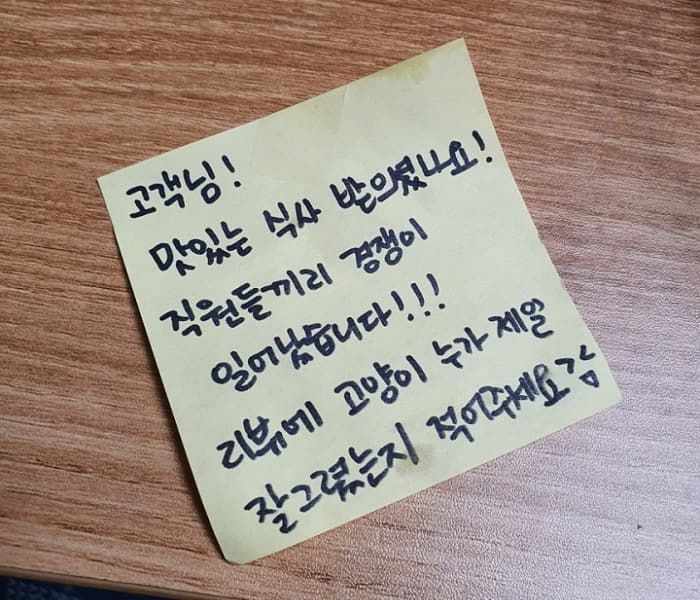 고객님!
맛있는 식사 받으셨나요!
직원들끼리 경쟁이
일어났습니다!!!
리뷰에 고양이 누가 제일
잘그렸는지 적어주세요감